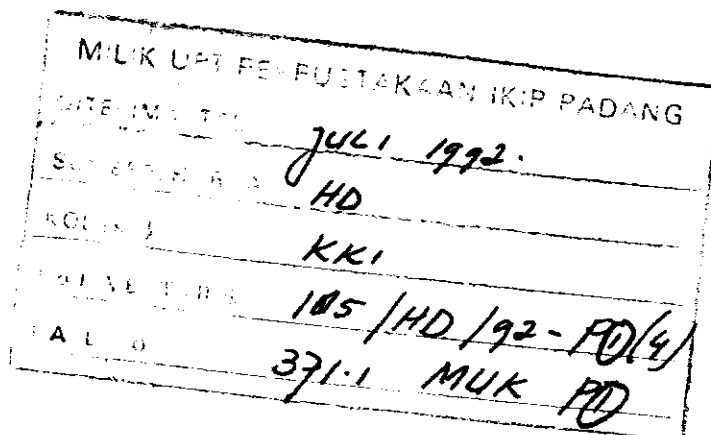 MILIK UPT PERPUSTAKAAN IKIP PADANG
DITERIMA TGL JULI 1992.
HD
KOLEKSI KKI
105/HD/92-P①(4)
371.1 MUK P①